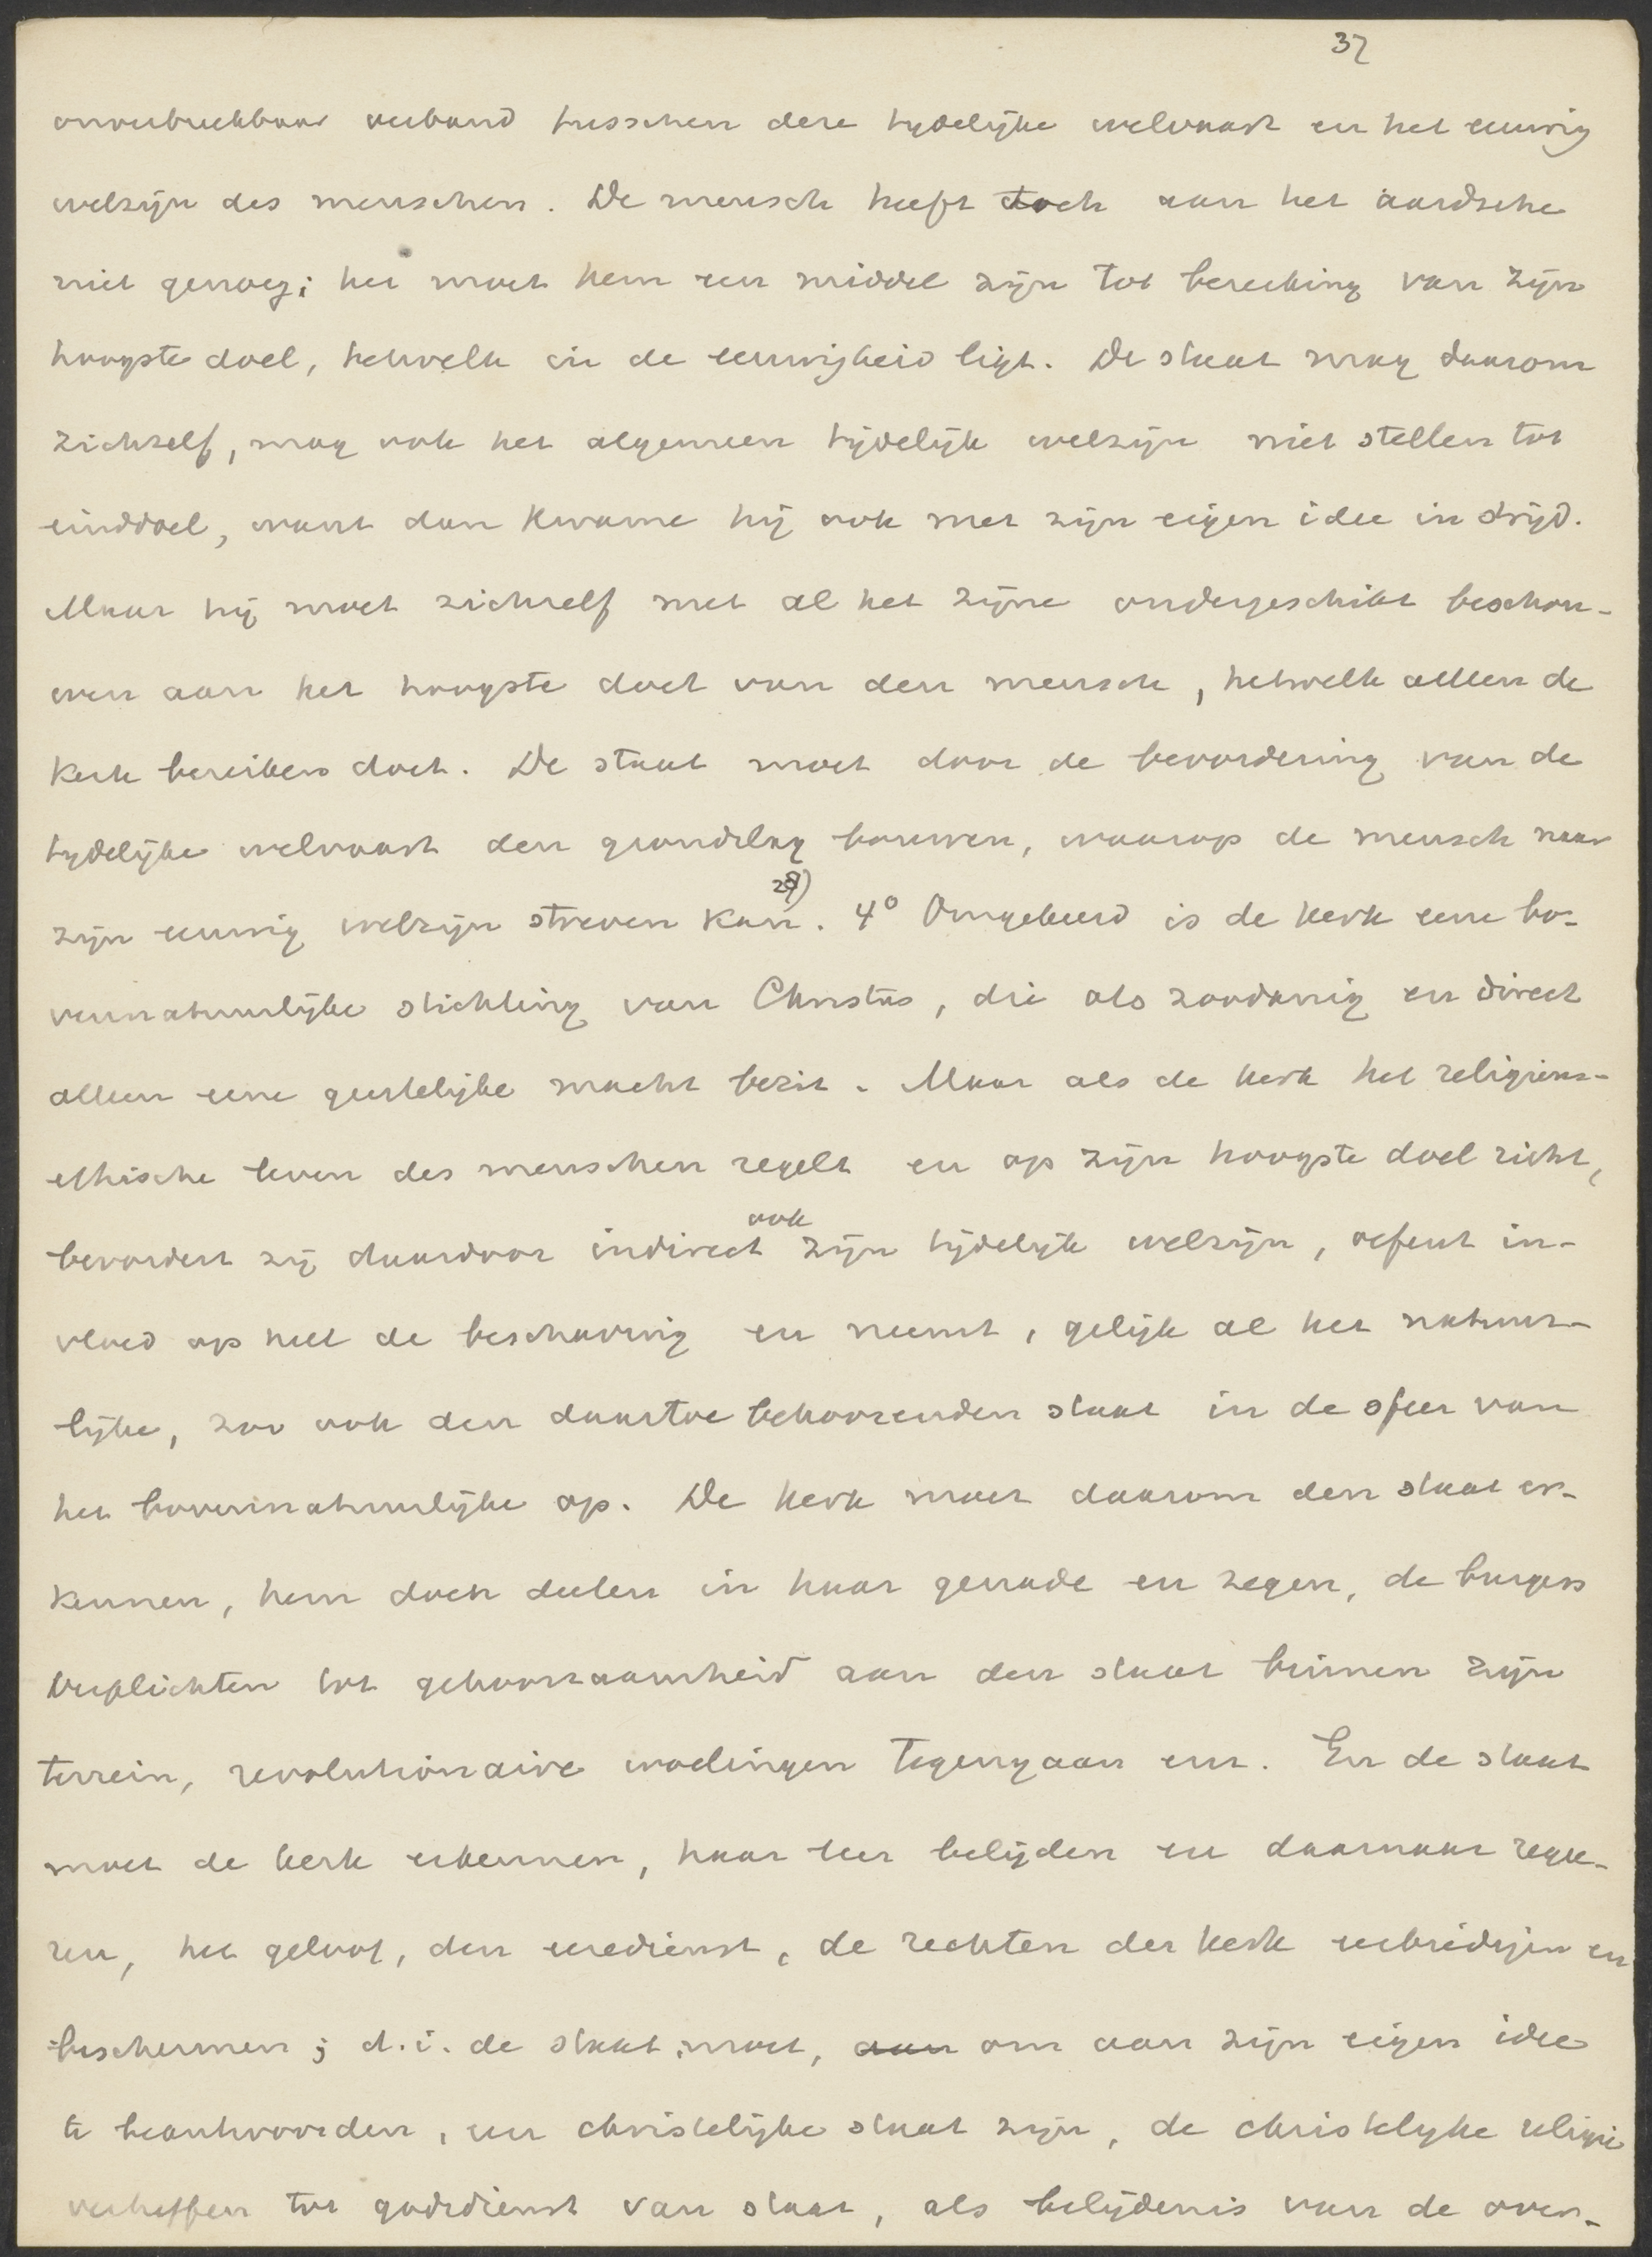 37
onverbreekbaar verband tusschen deze tydelijke welvaart en het eeuwig
welzijn des menschen. De mensch heeft toch aan het aardsche
niet genoeg; het moet hem een middel zijn tot bereiking van zijn
hoogste doel, hetwelk in de eeuwigheid ligt. De staat mag daarom
zichzelf, mag ook het algemeen tijdelijk welzijn niet stellen tot
einddoel, want dan kwame hij ook met zijn eigen idee in strijd.
Maar hij moet zichzelf met al het zijne ondergeschikt beschou-
wen aan het hoogste doel van den mensch, hetwelk alleen de
Kerk bereiken doet. De staat moet door de bevordering van de
tydelijke welvaart den grondslag bouwen, waarop de mensch naar
zijn eeuwig welzijn streven kan 28). 4° Omgekeerd is de Kerk eene bo-
vennatuurlijke stichting van Christus, die als zoodanig en direct
alleen eene geestelijke macht bezit. Maar als de kerk het religieus-
ethische leven des menschen regelt en op zijn hoogste doel richt,
bevordert zij daardoor indirect ook zijn tijdelijk welzijn, oefent in-
vloed op heel de beschaving en neemt, gelijk al het natuur-
lijke, zoo ook den daartoe behoorenden staat in de sfeer van
het bovennatuurlijke op. De Kerk moet daarom den staat er-
kennen, hem doen deelen in haar genade en zegen, de burgers
verplichten tot gehoorzaamheid aan den staat binnen zijn
terrein, revolutionaire woelingen tegengaan enz. En de staat
moet de kerk erkennen, haar leer belijden en daarnaar regee-
ren, het geloof, den eeredienst, de rechten der Kerk verbreiden en
beschermen; d.i. de staat moet, aan om aan zijn eigen idee
te beantwoorden, een christelijke staat zijn, de christelyke religie
verheffen tot godsdienst van staat, als belijdenis van de over-